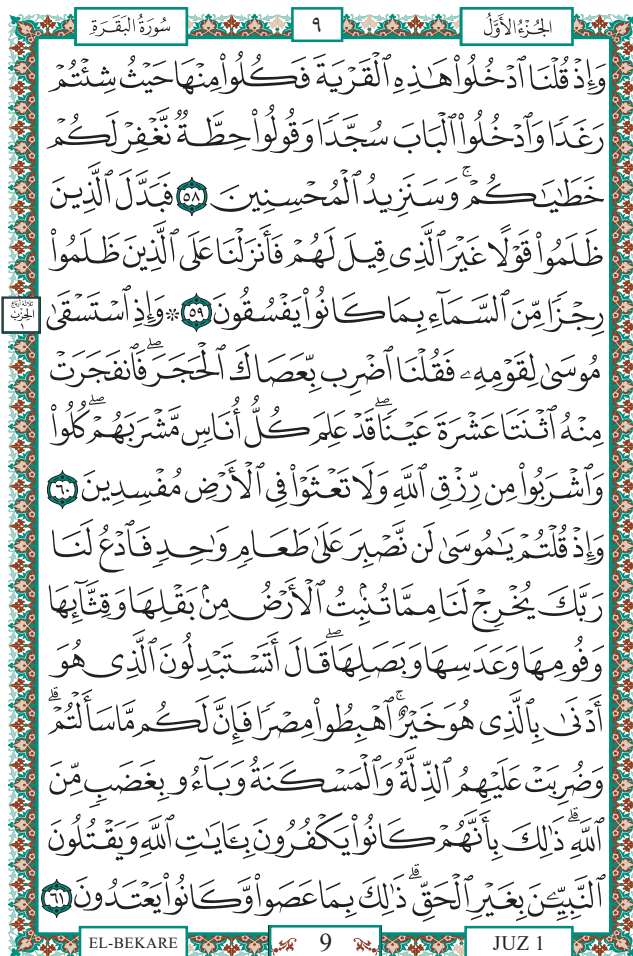 سُورَةُ البَقَرَةِ ٩ الجُزْءُ الأَوَّلُ
وَإِذْ قُلْنَا ٱدْخُلُوا۟ هَـٰذِهِ ٱلْقَرْيَةَ فَكُلُوا۟ مِنْهَا حَيْثُ شِئْتُمْ
رَغَدًا وَٱدْخُلُوا۟ ٱلْبَابَ سُجَّدًا وَقُولُوا۟ حِطَّةٌ نَّغْفِرْ لَكُمْ
خَطَـٰيَـٰكُمْ ۚ وَسَنَزِيدُ ٱلْمُحْسِنِينَ ٥٨ فَبَدَّلَ ٱلَّذِينَ
ظَلَمُوا۟ قَوْلًا غَيْرَ ٱلَّذِى قِيلَ لَهُمْ فَأَنزَلْنَا عَلَى ٱلَّذِينَ ظَلَمُوا۟
رِجْزًا مِّنَ ٱلسَّمَآءِ بِمَا كَانُوا۟ يَفْسُقُونَ ٥٩ ۞ وَإِذِ ٱسْتَسْقَىٰ
ثلاثة أرباع
الحزب
١
مُوسَىٰ لِقَوْمِهِۦ فَقُلْنَا ٱضْرِب بِّعَصَاكَ ٱلْحَجَرَ ۖ فَٱنفَجَرَتْ
مِنْهُ ٱثْنَتَا عَشْرَةَ عَيْنًا ۖ قَدْ عَلِمَ كُلُّ أُنَاسٍ مَّشْرَبَهُمْ ۖ كُلُوا۟
وَٱشْرَبُوا۟ مِن رِّزْقِ ٱللَّهِ وَلَا تَعْثَوْا۟ فِى ٱلْأَرْضِ مُفْسِدِينَ ٦٠
وَإِذْ قُلْتُمْ يَـٰمُوسَىٰ لَن نَّصْبِرَ عَلَىٰ طَعَامٍ وَٰحِدٍ فَٱدْعُ لَنَا
رَبَّكَ يُخْرِجْ لَنَا مِمَّا تُنۢبِتُ ٱلْأَرْضُ مِنۢ بَقْلِهَا وَقِثَّآئِهَا
وَفُومِهَا وَعَدَسِهَا وَبَصَلِهَا ۖ قَالَ أَتَسْتَبْدِلُونَ ٱلَّذِى هُوَ
أَدْنَىٰ بِٱلَّذِى هُوَ خَيْرٌ ۚ ٱهْبِطُوا۟ مِصْرًا فَإِنَّ لَكُم مَّا سَأَلْتُمْ ۗ
وَضُرِبَتْ عَلَيْهِمُ ٱلذِّلَّةُ وَٱلْمَسْكَنَةُ وَبَآءُو بِغَضَبٍ مِّنَ
ٱللَّهِ ۗ ذَٰلِكَ بِأَنَّهُمْ كَانُوا۟ يَكْفُرُونَ بِـَٔايَـٰتِ ٱللَّهِ وَيَقْتُلُونَ
ٱلنَّبِيِّـۧنَ بِغَيْرِ ٱلْحَقِّ ۗ ذَٰلِكَ بِمَا عَصَوا۟ وَّكَانُوا۟ يَعْتَدُونَ ٦١
EL-BEKARE 9 JUZ 1